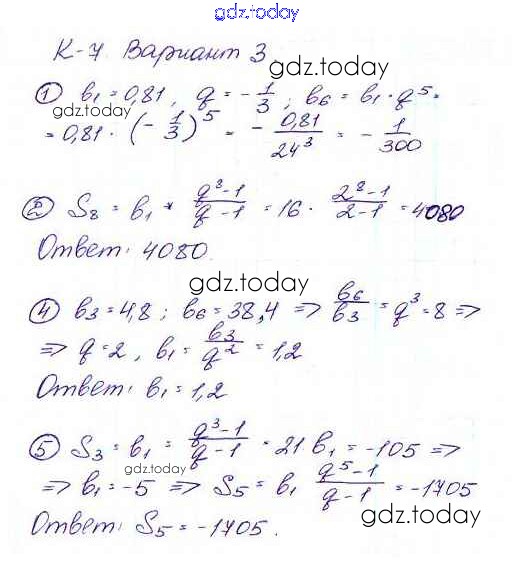 gdz.today
К-7. Вариант 3
gdz.today
① b₁ = 0,81, q = -1/3; b₆ = b₁ · q⁵ =
gdz.today
= 0,81 · (-1/3)⁵ = -0,81/24³ = -1/300
② S₈ = b₁ · (q⁸-1)/(q-1) = 16 · (2⁸-1)/(2-1) = 4080
Ответ: 4080.
gdz.today
④ b₃ = 4,8; b₆ = 38,4 => b₆/b₃ = q³ = 8 =>
=> q = 2, b₁ = b₃/q² = 1,2
gdz.today
Ответ: b₁ = 1,2
⑤ S₃ = b₁ = (q³-1)/(q-1) = 21 b₁ = -105 =>
gdz.today
=> b₁ = -5 => S₅ = b₁ (q⁵-1)/(q-1) = -1705
Ответ: S₅ = -1705.
gdz.today